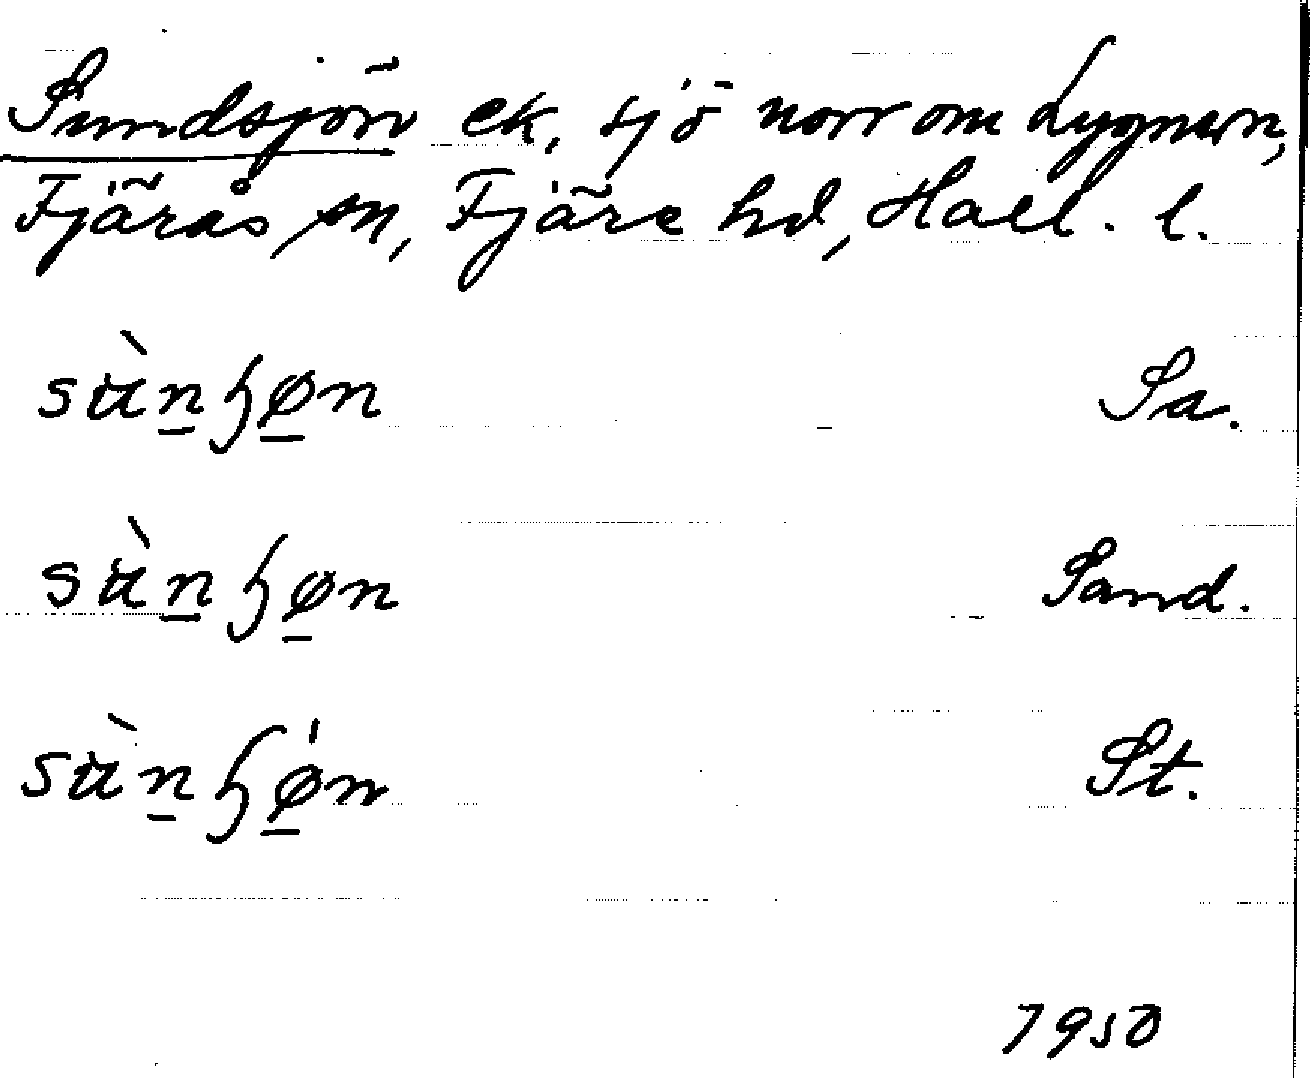 Sundsjön ek, sjö norr om Lygnern,
Fjärås sn, Fjäre hd, Hall. l.
sùn̲ɧø̲n Sa.
sùn̲ɧø̲n Sand.
sùn̲ɧǿ̲n St.
1950